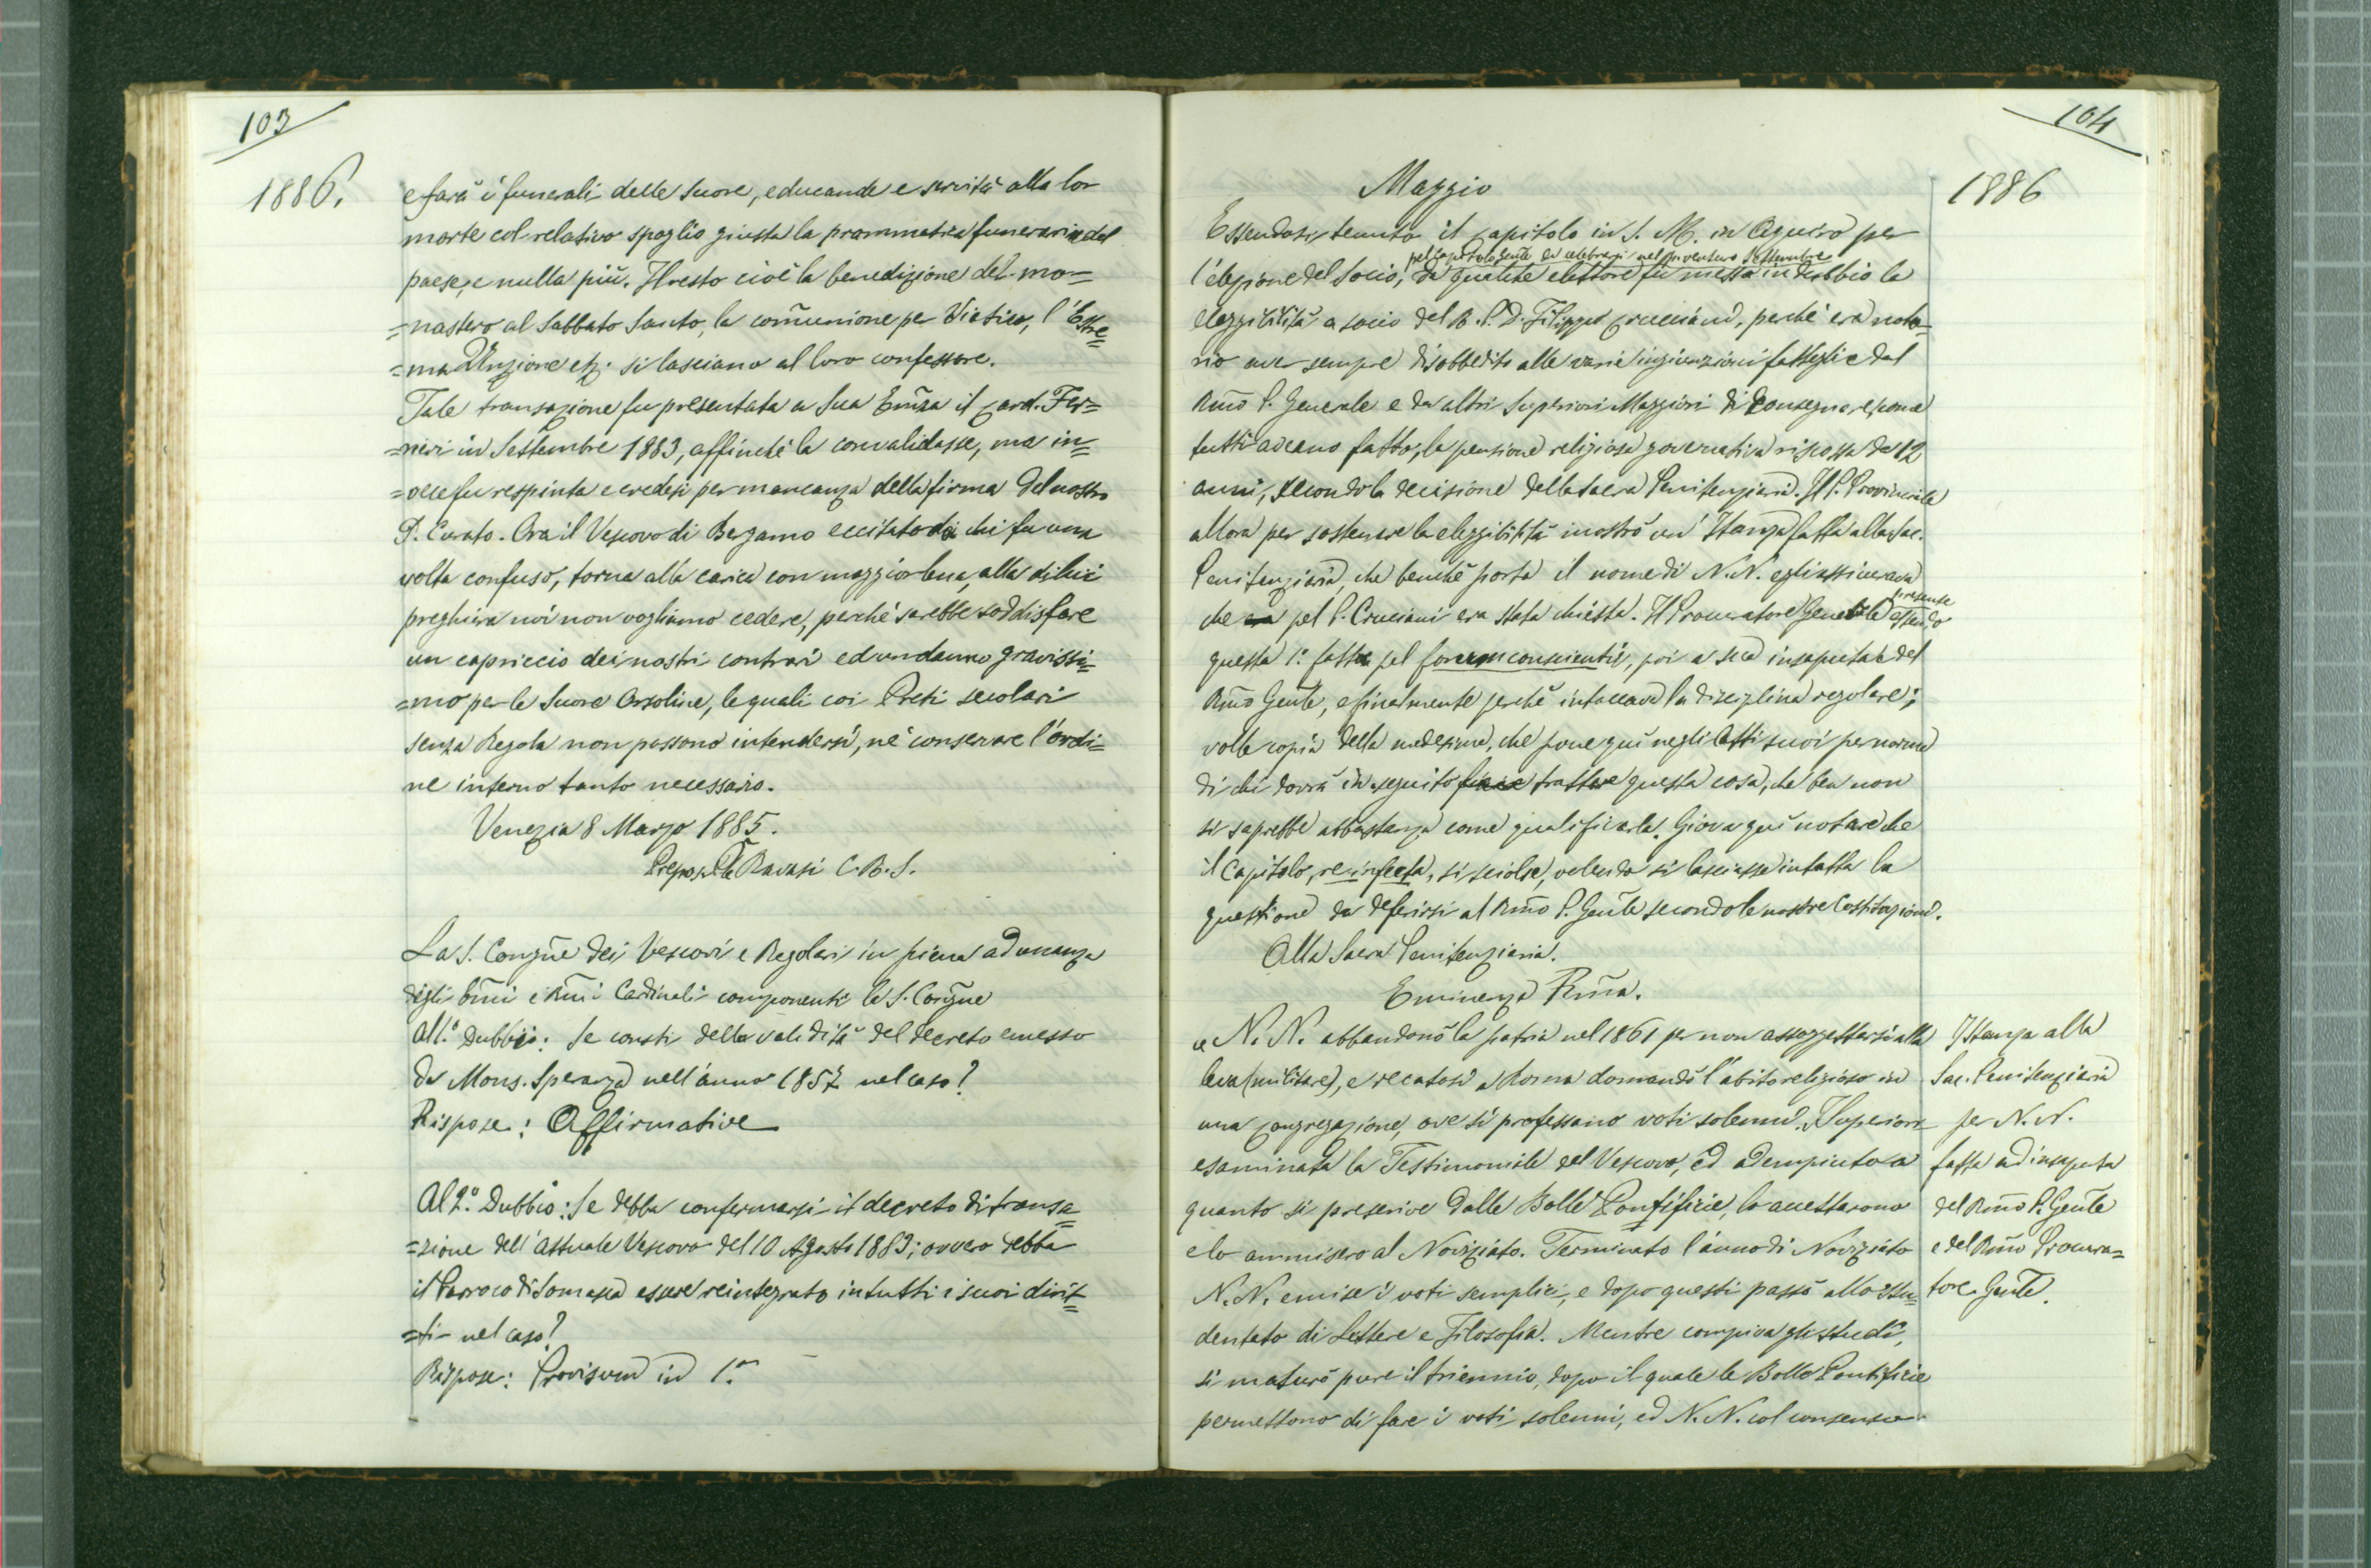 103
1886.
e farà i funerali delle Suore, educande e servità alla lor
morte col relativo spoglio giusta la prammatica funeraria del
paese, e nulla più. Il resto cioè la benedizione del mo=
=nastero al Sabbato Santo, la comunione per Viatico, l'Estre=
=ma Unzione etz. si lasciano al loro confessore.
Tale transazione fu presentata a Sua Emza il Card. Fer=
=rieri in Settembre 1883, affinchè la convalidasse, ma in=
=vece fu respinta e credesi per mancanza della firma del nostro
P. Curato. Ora il Vescovo di Bergamo eccitato da chi fu una
volta confuso, torna alla carica con maggior lena, alla di lui
preghiera noi non vogliamo cedere, perchè sarebbe soddisfare
un capriccio dei nostri contrari ed un danno gravissi=
=mo per le Suore Orsoline, le quali coi Preti secolari
senza Regola non possono intendersi, nè conservare l'ordi=
ne interno tanto necessario.
Venezia 8 Marzo 1885.
Prepos.to Ravasi C.R.S.
La S. Congñe dei Vescovi e Regolari in piena adunanza
degli Emi e Rmi Cardinali componenti la S. Congñe
All.° Dubbio: Se consti della validità del decreto emesso
da Mons. Speranza nell'anno 1857 nel caso?
Rispose: Affirmative
Al 2.° Dubbio: Se debba confermarsi il decreto di transa=
=zione dell'attuale Vescovo del 10 Agosto 1883; ovvero debba
il Parroco di Somasca essere reintegrato in tutti i suoi dirit=
=ti nel caso?
Rispose: Provisum in 1.°
104
1886
Maggio
Essendosi tenuto il Capitolo in S. M. in Aquiro per
pel Capitolo Genle da celebrarsi nel pr venturo Settembre
l'elezione del Socio, da qualche elettore fu messa in dubbio la
eleggibilità a socio del R. P. D. Filippo Cruciani, perchè era noto=
rio aver sempre disobbedito alle varie ingiunzioni fattegli e dal
Rmo P. Generale e da altri Superiori Maggiori di consegnare, come
tutti aveano fatto, la pensione religiosa governativa riscossa da 12
anni, secondo la decisione della Sacra Penitenzieria. Il P. Provinciale
allora per sostenere la eleggibilità mostrò un'Istanza fatta alla Sac.
Penitenzieria, che benchè porta il nome di N.N. egli assicurava
presente
che era pel P. Cruciani era stata chiesta. Il Procuratore Generale essendo
questa 1.° fatta pel forum conscientiae, poi a sua insaputa e del
Rmo Genle, e finalmente perchè intaccava la disciplina regolare;
volle copia della medesima, che pone quì negli Atti suoi per norma
di chi dovrà in seguito trattare questa cosa, che ben non
si saprebbe abbastanza come qualificarla. Giova quì notare che
il Capitolo, re infecta, si sciolse, volendo si lasciasse intatta la
questione da deferirsi al Rmo P. Genle secondo le nostre Costituzioni.
Alla Sacra Penitenzieria.
Eminenza Rma.
" N. N. abbandonò la patria nel 1861 per non assoggettarsi alla
leva (militare), e recatosi a Roma domandò l'abito religioso in
una Congregazione, ove si professano voti solenni. I Superiori
esaminata la Testimoniale del Vescovo, ed adempiuto a
quanto si prescrive dalle Bolle Pontificie, lo accettarono
e lo ammisero al Noviziato. Terminato l'anno di Noviziato
N. N. emise i voti semplici, e dopo questi passò allo Stu=
dentato di Lettere e Filosofia. Mentre compiva gli studi,
si maturò pure il triennio, dopo il quale le Bolle Pontificie
permettono di fare i voti solenni, ed N. N. col consenso
Istanza alla
Sac. Penitenzieria
per N. N.
fatta ad insaputa
del Rmo P. Genle
e del Rmo Procura=
tore Genle.